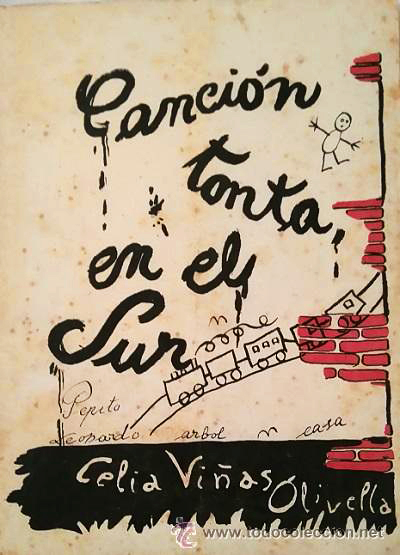 Canción
tonta
en el
Sur
Pepito
Leopardo arbol n casa
Celia Viñas
Olivella
www.todocoleccion.net